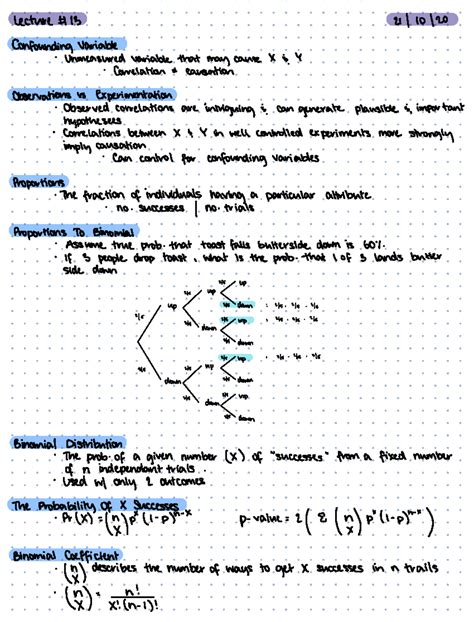 Lecture #13
21 | 10 | 20
Confounding Variable
· Unmeasured variable that may cause X & Y
· Correlation ≠ causation
Observations vs Experimentation
· Observed correlations are intriguing & can generate plausible & important
hypotheses
· Correlations between X & Y in well controlled experiments more strongly
imply causation
· Can control for confounding variables
Proportions
· The fraction of individuals having a particular attribute
no. successes | no. trials
Proportions To Binomial
· Assume true prob. that toast falls butterside down is 60%.
· If 3 people drop toast, what is the prob. that 1 of 3 lands butter
side down
up
up
up
down
down
up
down
down
up
up
down
down
up
down
Binomial Distribution
· The prob. of a given number (X) of "successes" from a fixed number
of n independant trials.
· Used w/ only 2 outcomes
The Probability Of X Successes
· Pr(X) = (n X) p^x (1-p)^n-x
p-value = 2( Σ (n X) p^x (1-p)^n-x )
Binomial Coefficient
· (n X) describes the number of ways to get X successes in n trails
· (n X) = n! / X!(n-1)!